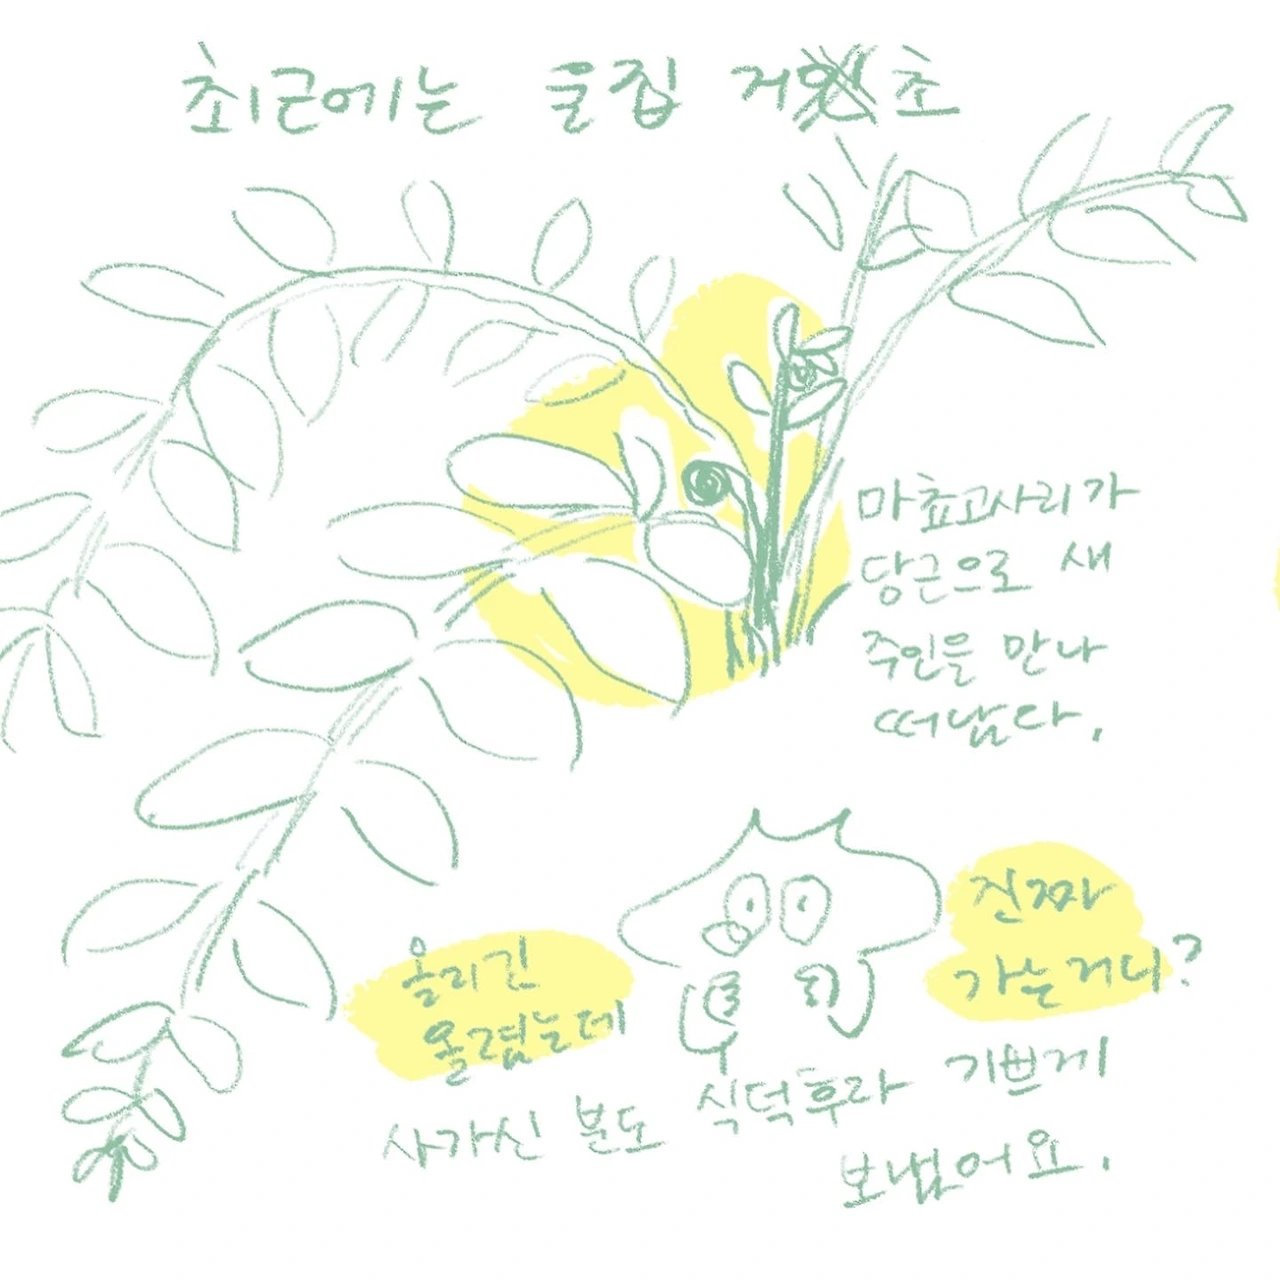 최근에는 울집 거 초
마쵸고사리가
당근으로 새
주인을 만나
떠났다.
올리긴
올렸는데
진짜
가는거니?
사가신 분도 식덕후라 기쁘게
보냈어요.